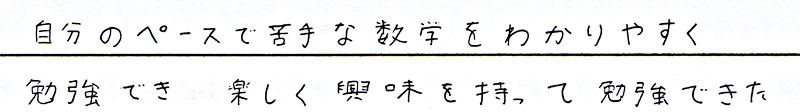 自分のペースで苦手な数学をわかりやすく
勉強でき 楽しく興味を持って勉強できた